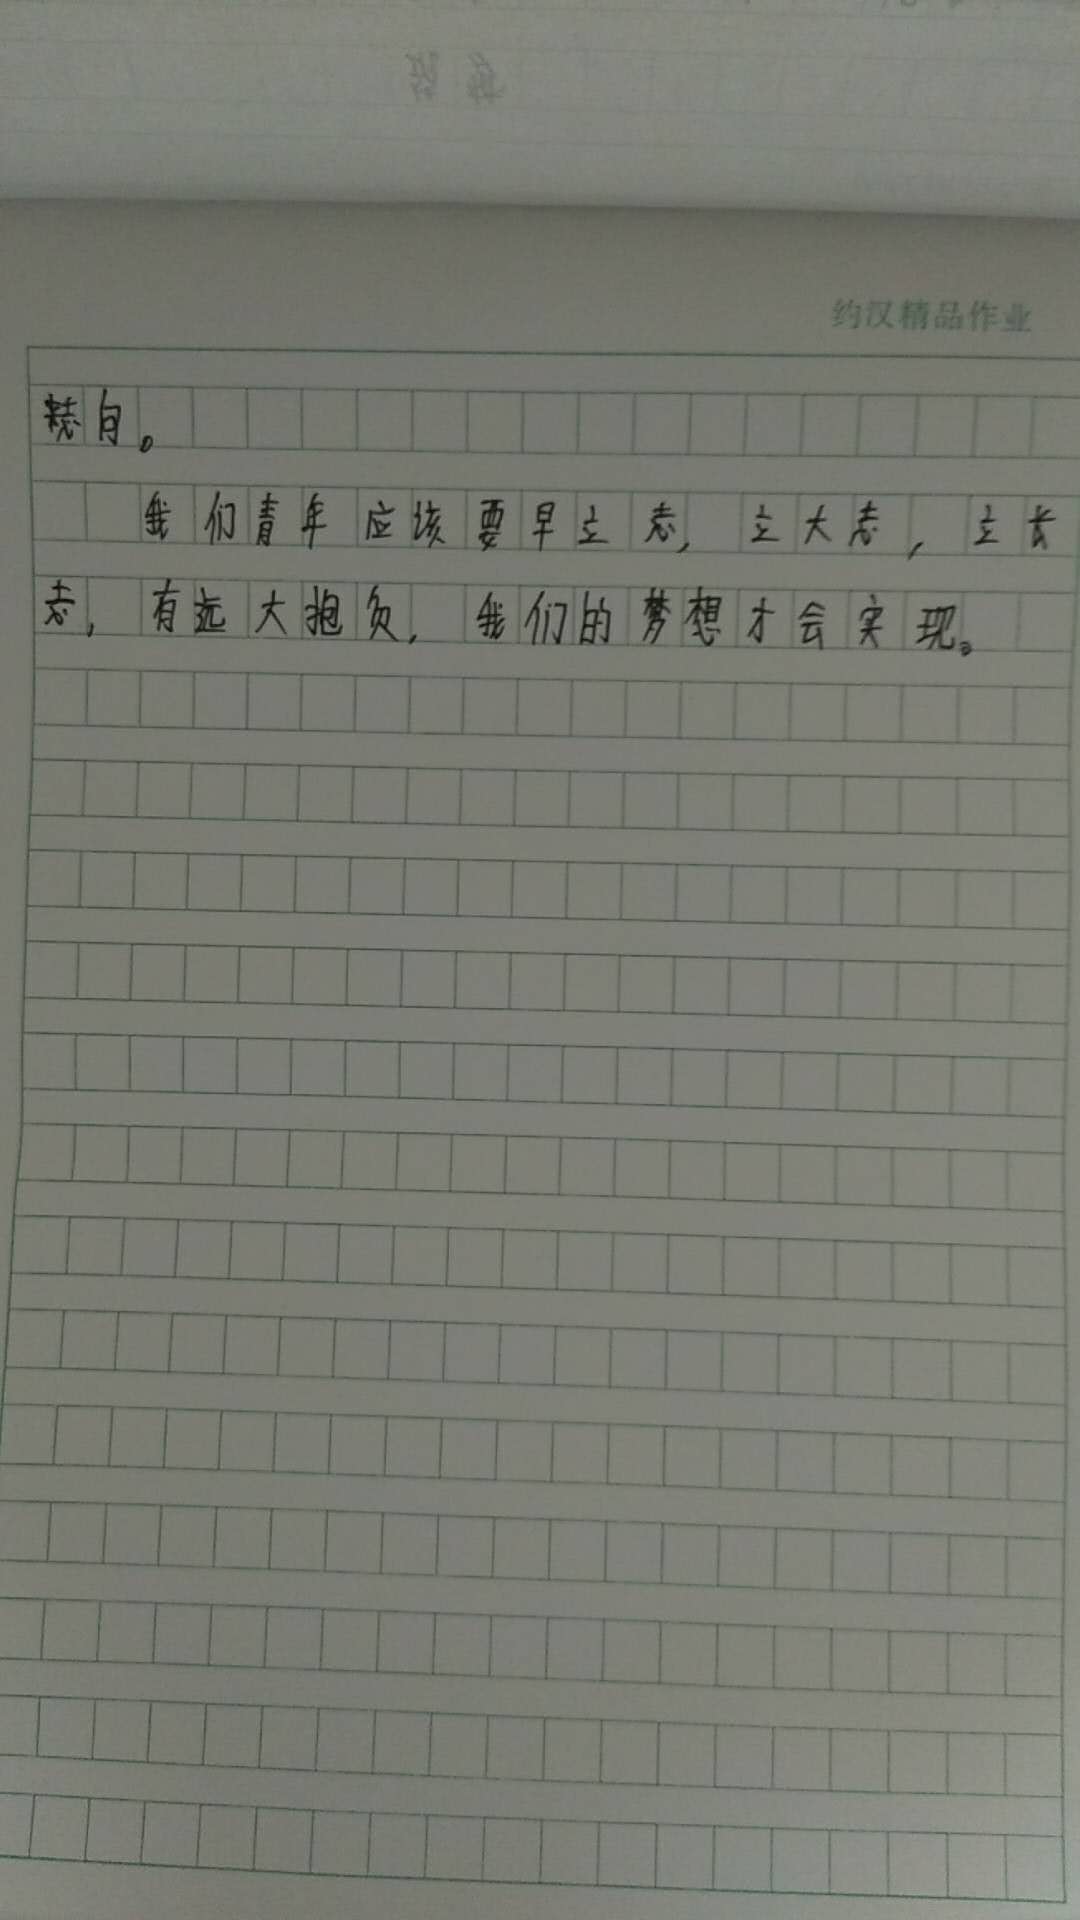 约汉精品作业
我们青年应该要早立志，立大志，立长
志，有远大抱负，我们的梦想才会实现。